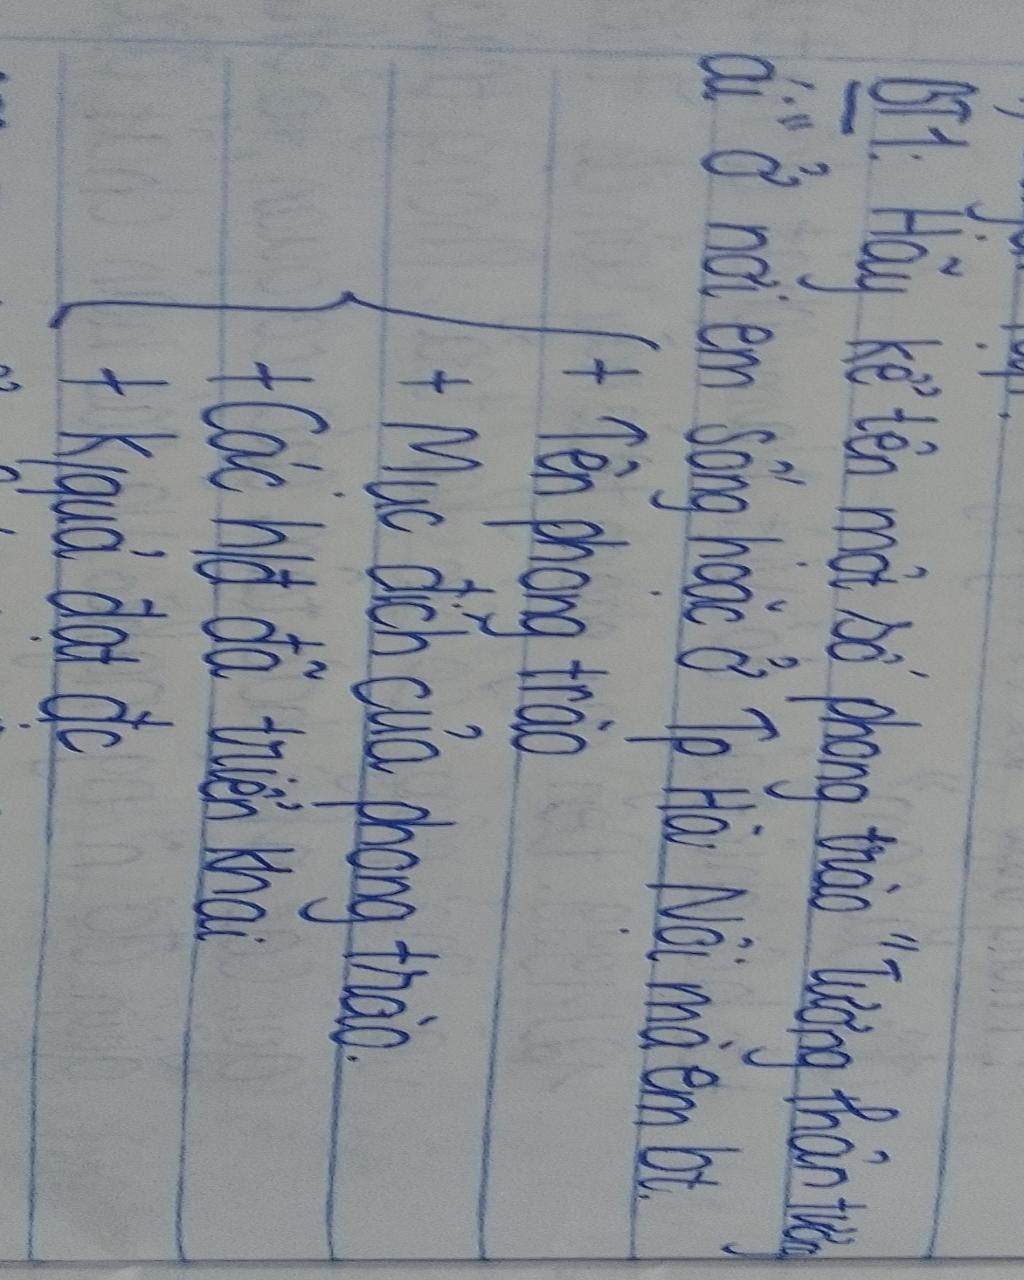 BT1: Hãy kể tên một số phong trào "Tương thân tương
ái" ở nơi em sống hoặc ở Tp Hà Nội mà em bt.
+ Tên phong trào
+ Mục đích của phong trào.
+ Các hđ đã triển khai
+ Kquả đạt đc